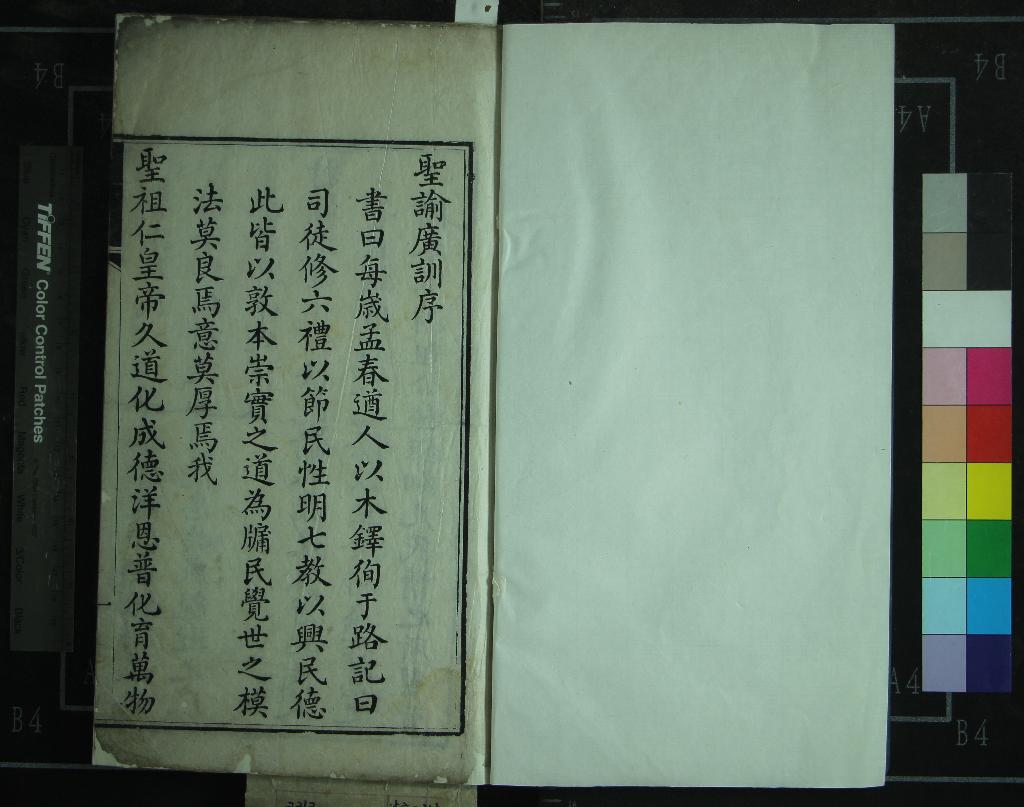 聖諭廣訓序
書曰每歳孟春遒人以木鐸徇于路記曰
司徒修六禮以節民性明七教以興民德
此皆以敦本崇實之道為牖民覺世之模
法莫良焉意莫厚焉我
聖祖仁皇帝久道化成德洋恩普化育萬物
一
TIFFEN Color Control Patches
B4
B4
A4
A4
B4
B4